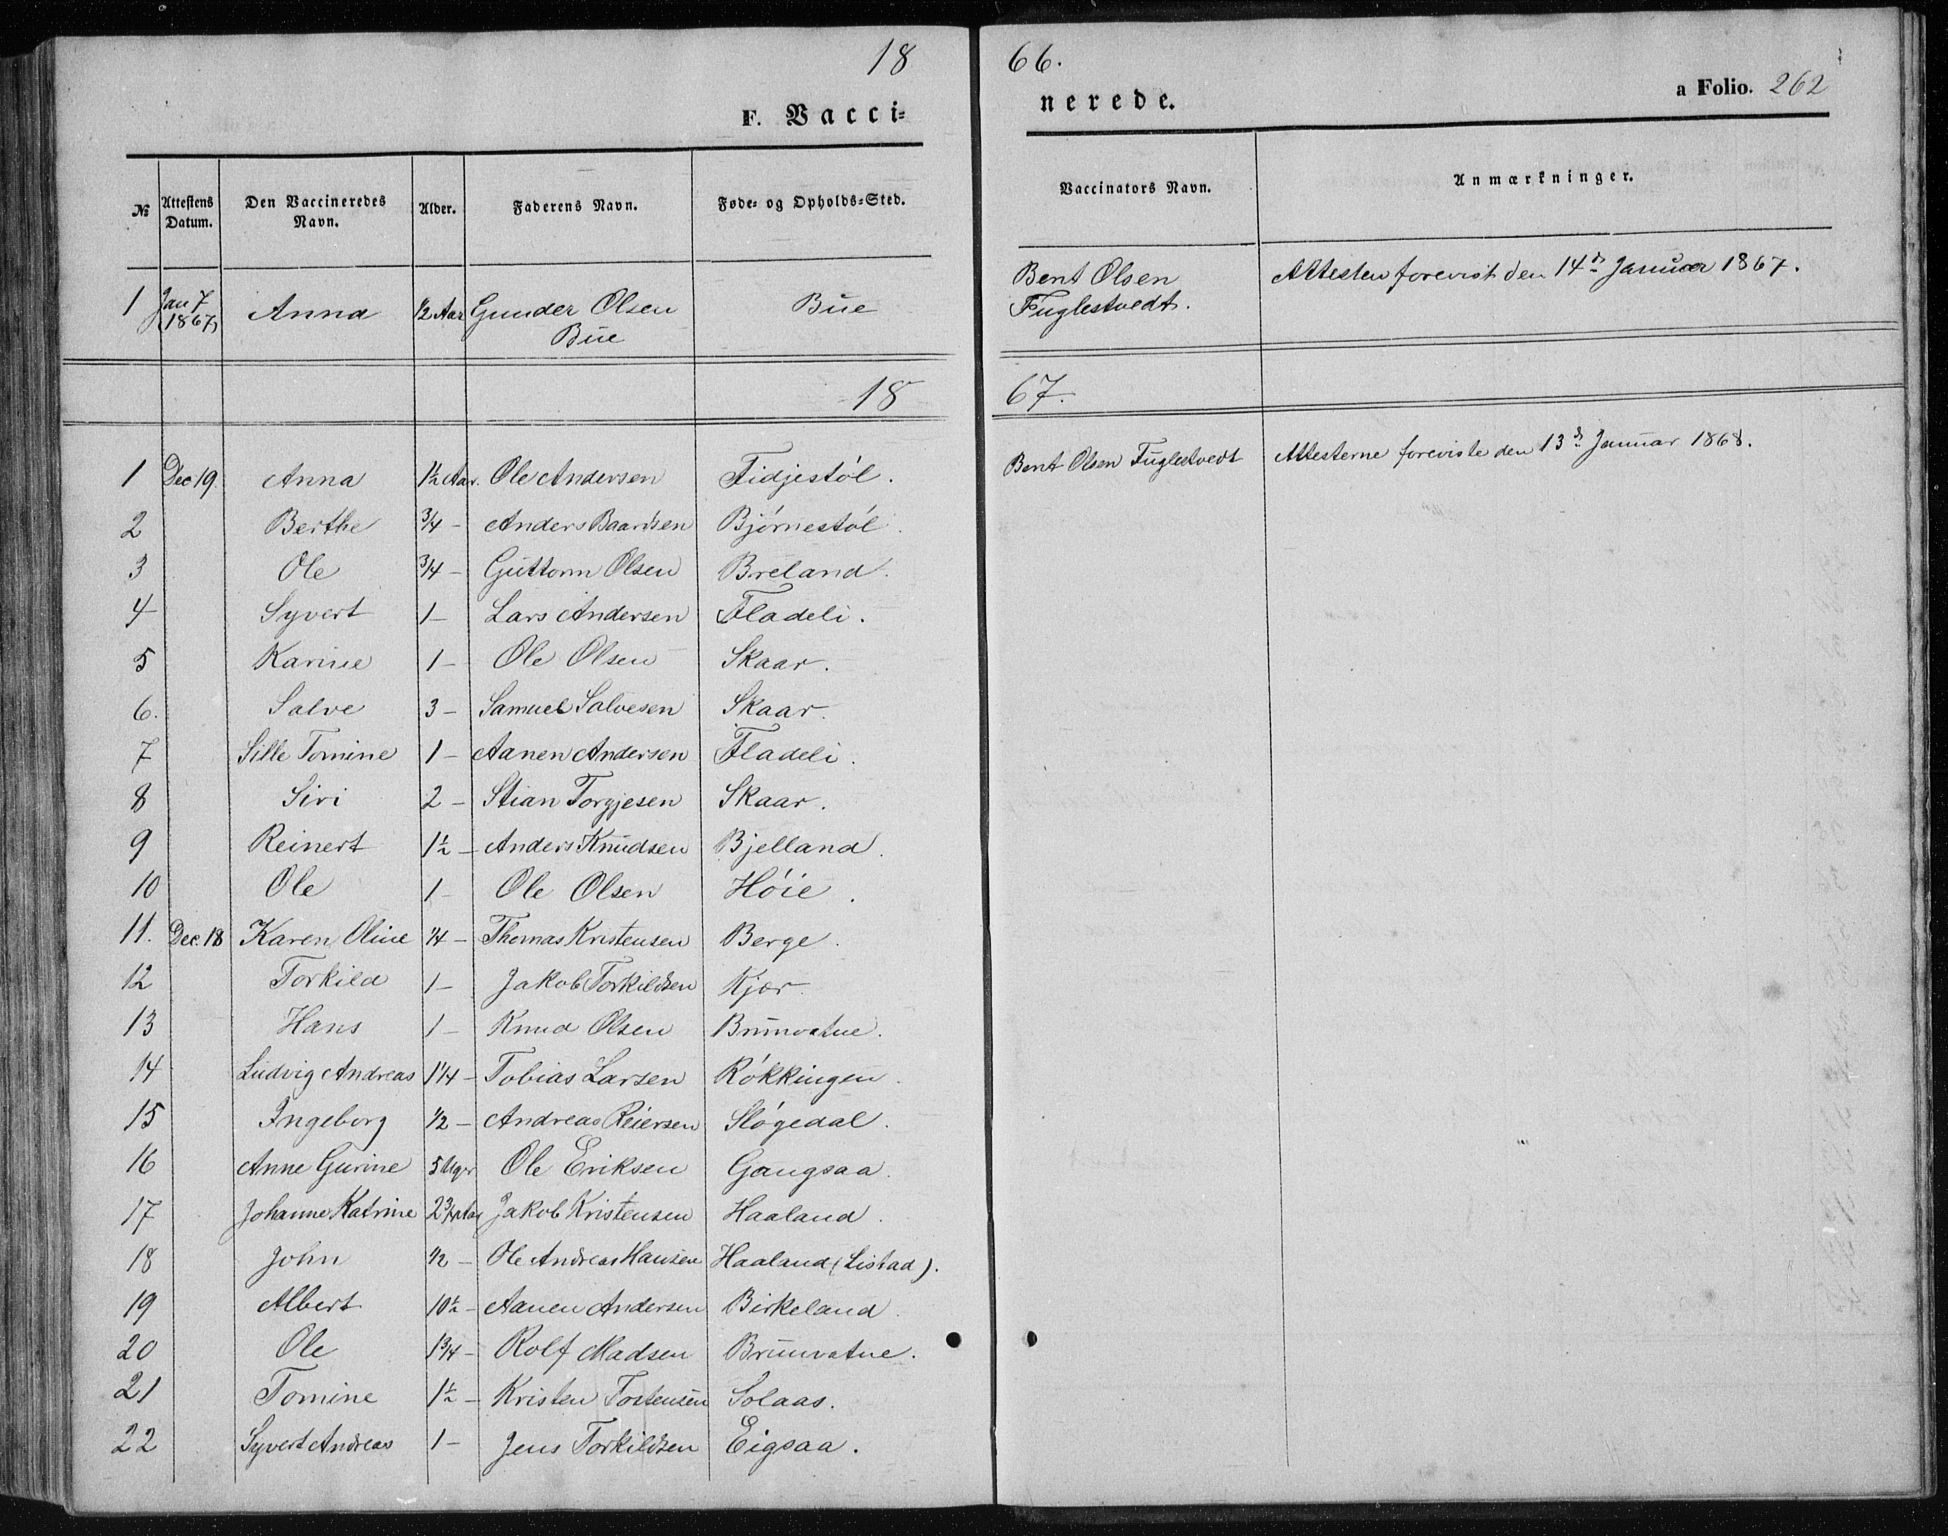 18 66.
F. Vacci= nerede. a Folio. 262
№ Attestens Datum. Den Vaccineredes Navn. Alder. Faderens Navn. Føde= og Opholds=Sted. Vaccinators Navn. Anmærkninger.
1 Jan 7 1867 Anna 1/2 Aar Gunder Olsen Bue Bue Bent Olsen Fuglestvedt. Attesten forevist den 14de Januar 1867.
18 67.
1 Dec 19. Anna 1½ Aar. Ole Andersen Fidjestöl. Bent Olsen Fuglestvedt Attesterne foreviste den 13de Januar 1868.
2 Berthe 3/4 – Anders Baardsen Björnestöl.
3 Ole 3/4 – Guttorm Olsen Breland.
4 Syvert 1 – Lars Andersen Fladeli.
5 Karine 1 – Ole Olsen Skaar.
6. Salve 3 – Samuel Salvesen Skaar.
7 Sille Tomine 1 – Aanen Andersen Fladeli.
8 Siri 2 – Stian Torgjesen Skaar.
9 Reinert 1½ – Anders Knudsen Bjelland.
10 Ole 1 – Ole Olsen Höie.
11. Dec. 18 Karen Oline 1/4 – Thomas Kristensen Berge.
12 Torkild 1 – Jakob Torkildsen Kjær.
13 Hans 1 – Knud Olsen Brunvatne.
14 Ludvig Andreas 1 1/4 – Tobias Larsen Rökkingen.
15 Ingeborg 1/2 – Andreas Reiersen Slögedal.
16 Anne Gurine 5 Uger Ole Eriksen Gangsaa.
17 Johanne Katrine 2 3/4 Aar Jakob Kristensen Haaland.
18 John 1/2 – Ole Andreas Hansen Haaland (Listad).
19 Albert 10½ – Aanen Andersen Birkeland.
20 Ole 1 3/4 – Rolf Madsen Brunvatne.
21 Tomine 1½ – Kristen Tostensen Solaas.
22 Syvert Andreas 1 – Jens Torkildsen Eigsaa.